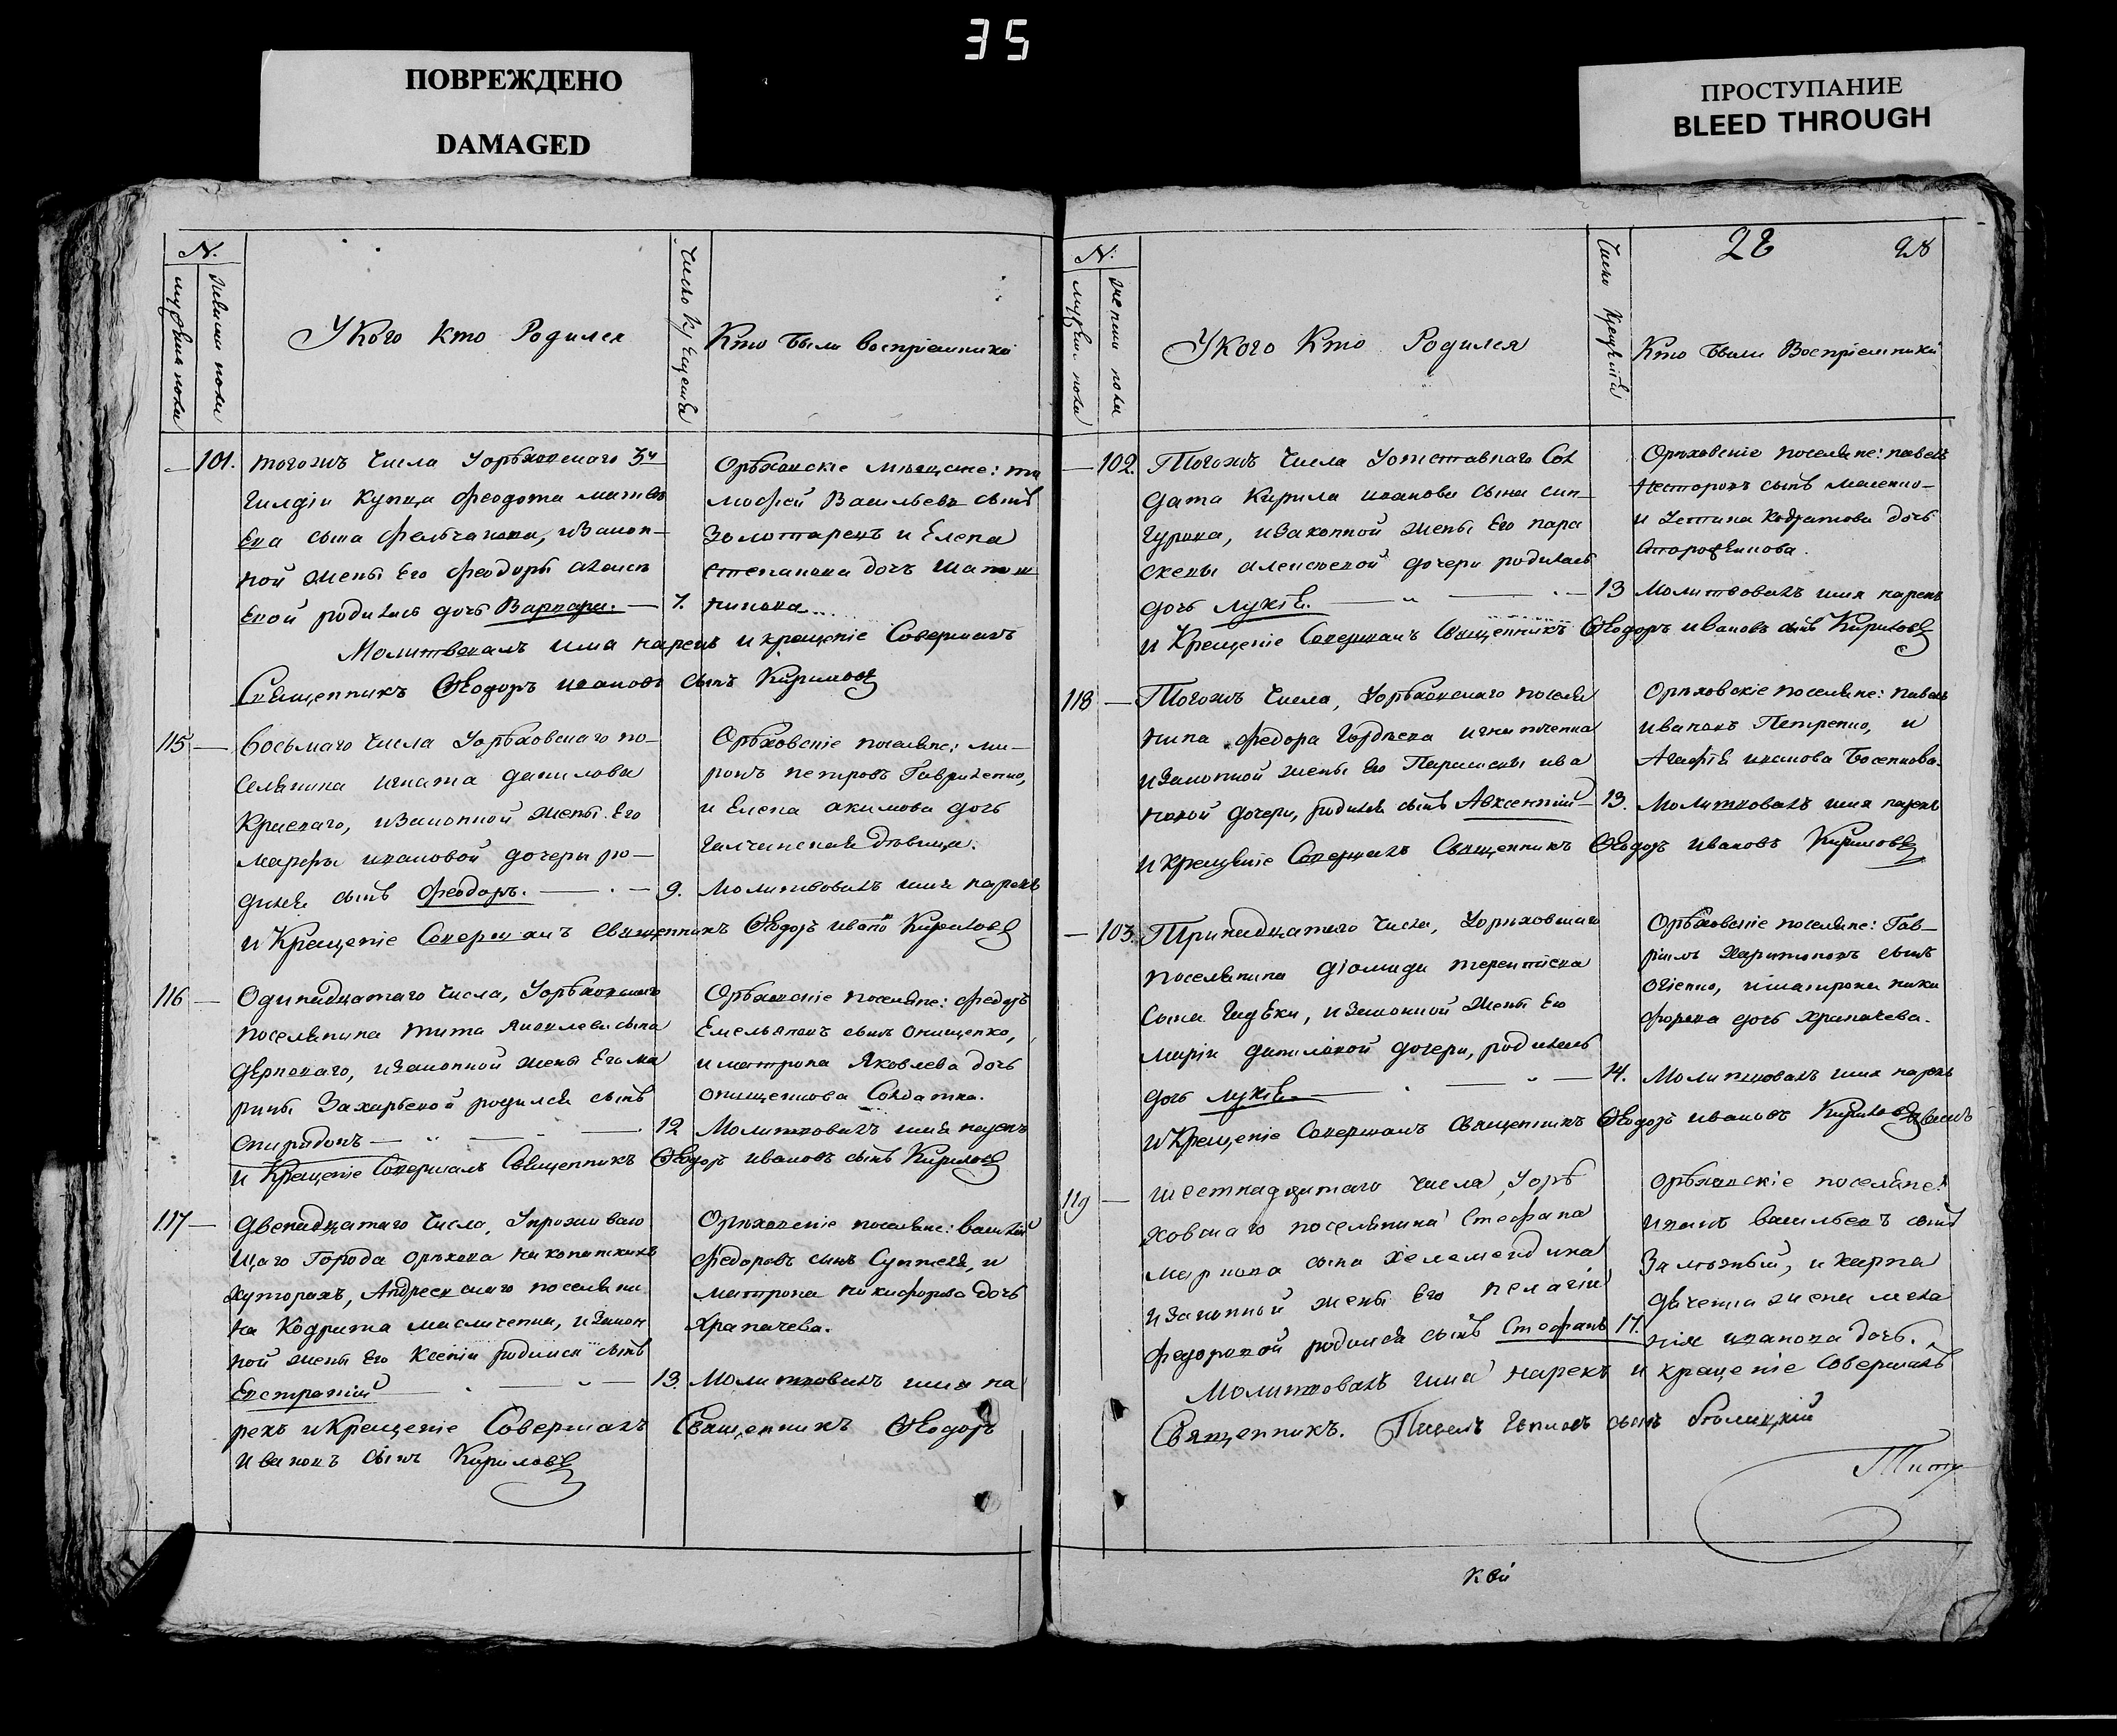 35
ПОВРЕЖДЕНО
DAMAGED
ПРОСТУПАНИЕ
BLEED THROUGH
N.
мужеска пола
женска пола
У Кого кто Родился
Число крещенія
Кто были восприемники
101. тогожъ числа Уорѣховскаго 3й
гилдіи купца Феодота матвѣ
ева сына Фельчакова, изакон-
ной жены его Феодоры алексѣ
евой родилась дочь Варвара. — 7.
Орѣховскіе мѣщане: ти
мофей Васильевъ сынъ
Золотаревъ и Елена
степанова дочь
Молитвовалъ имя нарекъ и крещеніе Совершалъ
Священникъ Ѳеодоръ ивановъ сынъ Кириловъ
115 — Восьмаго числа Уорѣховскаго по-
селянина игната данилова
Краснаго, изаконной жены его
марфы ивановой дочери ро-
дился сынъ Феодоръ. — 9.
Орѣховскіе поселяне: ми-
ронъ петровъ Гавриленко,
и Елена акимова дочь
Галчинская дѣвица.
Молитвовалъ имя нарекъ
и Крещеніе Совершалъ Священникъ Ѳеодоръ ивановъ Кириловъ
116 — Одинадцатаго числа, Уорѣховскаго
поселянина тита Яковлева сына
дерпскаго, изаконной жены его ма
рины Захарьевой родился сынъ
Спиридонъ — 12
Орѣховскіе поселяне: Федоръ
Емельяновъ сынъ онищенко,
и матрона Яковлева дочь
онищенкова Солдатка.
Молитвовалъ имя нарекъ
и Крещеніе Совершалъ Священникъ Ѳеодоръ ивановъ сынъ Кириловъ
117 — Двенадцатаго числа, Упроживаю
щаго Города орѣхова на копаткиныхъ
хуторахъ, Андреевскаго поселяни
на Кодрата масличенка, изакон
ной жены его Ксеніи родился сынъ
Евстратій — 13.
Орѣховскіе поселяне: василій
Федоровъ сынъ Суптеля, и
матрона никифорова дочь
Храпачева.
Молитвовалъ имя на
рекъ и Крещеніе Совершалъ Священникъ Ѳеодоръ
Ивановъ сынъ Кириловъ
28 28
N.
мужеска пола
женска пола
У Кого Кто Родился
Число Крещенія
Кто были Восприемники
102. Тогожъ числа Уотставнаго Сол
дата Кирила иванова сына син-
гурова, изаконной жены его пара
скевы алексѣевой дочери родилась
дочь Лукія. — 13
Орѣховскіе поселяне: павелъ
Несторовъ сынъ
и Устина Кодратова дочь
Молитвовалъ имя нарекъ
и Крещеніе Совершалъ Священникъ Ѳеодоръ ивановъ сынъ Кириловъ
118 — Тогожъ числа, Уорѣховскаго поселя
нина Федора Гордѣева игнатченка
изаконной жены его Параскевы ива
новой дочери, родился сынъ Авксентій — 13.
Орѣховскіе поселяне: павелъ
ивановъ Петренко, и
Агафія иванова Босенкова.
Молитвовалъ имя нарекъ
и крещеніе Совершалъ Священникъ Ѳеодоръ ивановъ Кириловъ
103. Тринадцатаго числа, Уорѣховскаго
поселянина діомида терентіева
сына Гидѣки, изаконной жены его
маріи даниловой дочери, родилась
дочь Лукія. — 14.
Орѣховскіе поселяне: Гав-
рилъ Харитоновъ сынъ
огіенко, и матрона ники
форова дочь Храпачева.
Молитвовалъ имя нарекъ
и Крещеніе Совершалъ Священникъ Ѳеодоръ ивановъ Кириловъ
119 — шестнадцатаго числа, Уорѣ
ховскаго поселянина Стефана
маркова сына
изаконной жены его пелагіи
федоровой родился сынъ Стефанъ 17.
орѣховскіе поселяне:
иванъ васильевъ сынъ
жена мела
нія иванова дочь.
Молитвовалъ имя нарекъ и крещеніе Совершалъ
Священникъ. Павелъ сынъ